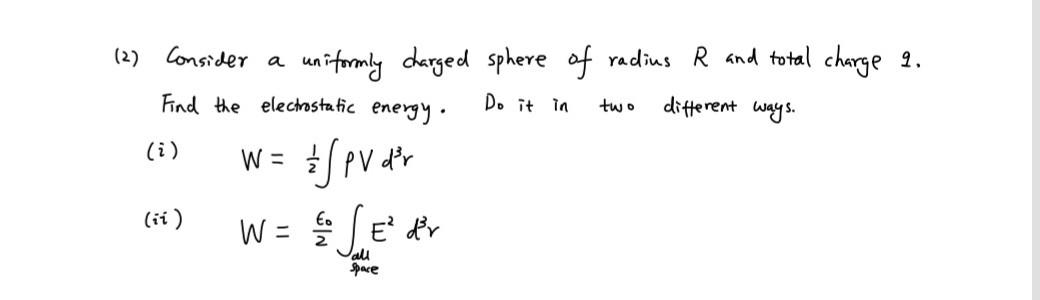 (2) Consider a uniformly charged sphere of radius R and total charge q.
Find the electrostatic energy. Do it in two different ways.
(i) W = ½∫ρV d³r
(ii) W = ε₀/2 ∫_{all space} E² d³r